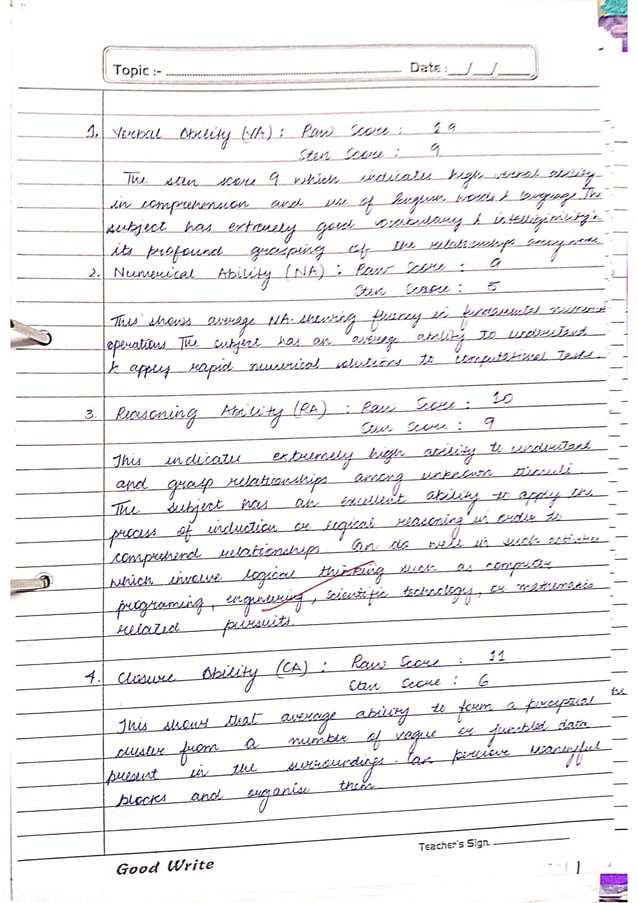 Topic :- Date : __/__/____
1. Verbal Ability (VA) : Raw Score : 19
Sten Score : 9
The sten score 9 which indicates high verbal ability
in comprehension and use of English words & language. The
subject has extremely good vocabulary & intelligimility in
its profound grasping of the relationships among
2. Numerical Ability (NA) : Raw Score : 9
Sten Score : 5
This shows average NA showing fluency in fundamental
operations. The subject has an average ability to understand
& apply rapid numerical solutions to computational tasks.
3. Reasoning Ability (RA) : Raw Score : 10
Sten Score : 9
This indicates extremely high ability to understand
and grasp relationships among unknown stimuli
The subject has an excellent ability to apply the
process of induction or logical reasoning in order to
comprehend relationships. Can do well in such activities
which involve logical thinking such as computer
programing, engineering, scientific technology, or mathematic
related pursuits.
4. Closure Ability (CA) : Raw Score : 11
Sten Score : 6
This shows that average ability to form a perceptual
cluster from a number of vague or jumbled data
present in the surroundings. Can percieve meaningful
blocks and organise them.
Teacher's Sign.
Good Write